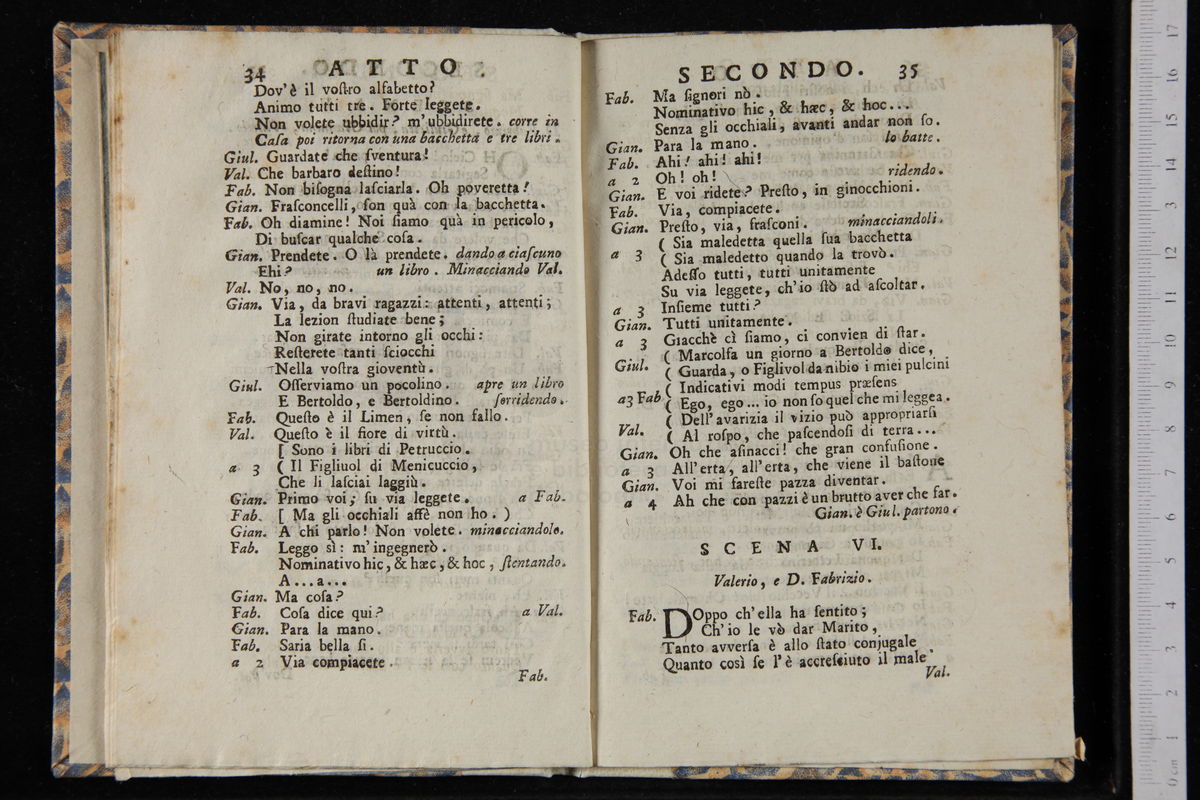 34 ATTO.
Dov'è il voſtro alfabetto?
Animo tutti tre. Forte leggete.
Non volete ubbidir? m'ubbidirete. corre in
Caſa poi ritorna con una bacchetta e tre libri.
Giul. Guardate che ſventura!
Val. Che barbaro deſtino!
Fab. Non biſogna laſciarla. Oh poveretta!
Gian. Fraſconcelli, ſon quà con la bacchetta.
Fab. Oh diamine! Noi ſiamo quà in pericolo,
Di buſcar qualche coſa.
Gian. Prendete. O là prendete. dando a ciaſcuno
Ehi? un libro. Minacciando Val.
Val. No, no, no.
Gian. Via, da bravi ragazzi: attenti, attenti;
La lezion ſtudiate bene;
Non girate intorno gli occhi:
Reſterete tanti ſciocchi
Nella voſtra gioventù.
Giul. Oſſerviamo un pocolino. apre un libro
E Bertoldo, e Bertoldino. ſorridendo.
Fab. Queſto è il Limen, ſe non fallo.
Val. Queſto è il fiore di virtù.
[ Sono i libri di Petruccio.
a 3 ( Il Figliuol di Menicuccio,
Che li laſciai laggiù.
Gian. Primo voi; ſu via leggete. a Fab.
Fab. [ Ma gli occhiali affè non ho. )
Gian. A chi parlo! Non volete. minacciandolo.
Fab. Leggo sì: m'ingegnerò.
Nominativo hic, & hæc, & hoc, ſtentando.
A...a...
Gian. Ma coſa?
Fab. Coſa dice qui? a Val.
Gian. Para la mano.
Fab. Saria bella ſi.
a 2 Via compiacete.
Fab.
SECONDO. 35
Fab. Ma ſignori nò.
Nominativo hic, & hæc, & hoc...
Senza gli occhiali, avanti andar non ſo.
Gian. Para la mano. lo batte.
Fab. Ahi! ahi! ahi!
a 2 Oh! oh! ridendo.
Gian. E voi ridete? Preſto, in ginocchioni.
Fab. Via, compiacete.
Gian. Preſto, via, fraſconi. minacciandoli.
( Sia maledetta quella ſua bacchetta
a 3 ( Sia maledetto quando la trovò.
Adeſſo tutti, tutti unitamente
Su via leggete, ch'io ſtò ad aſcoltar.
a 3 Inſieme tutti?
Gian. Tutti unitamente.
a 3 Giacchè cì ſiamo, ci convien di ſtar.
( Marcolfa un giorno a Bertoldo dice,
Giul. ( Guarda, o Figlivol da nibio i miei pulcini
( Indicativi modi tempus præſens
a3 Fab ( Ego, ego... io non ſo quel che mi leggea.
( Dell'avarizia il vizio può appropriarſi
Val. ( Al roſpo, che paſcendoſi di terra...
Gian. Oh che aſinacci! che gran confuſione.
a 3 All'erta, all'erta, che viene il baſtone
Gian. Voi mi fareſte pazza diventar.
a 4 Ah che con pazzi è un brutto aver che far.
Gian. è Giul. partono.
SCENA VI.
Valerio, e D. Fabrizio.
Fab. DOppo ch'ella ha ſentito;
Ch'io le vò dar Marito,
Tanto avverſa è allo ſtato conjugale
Quanto così ſe l'è accreſciuto il male
Val.